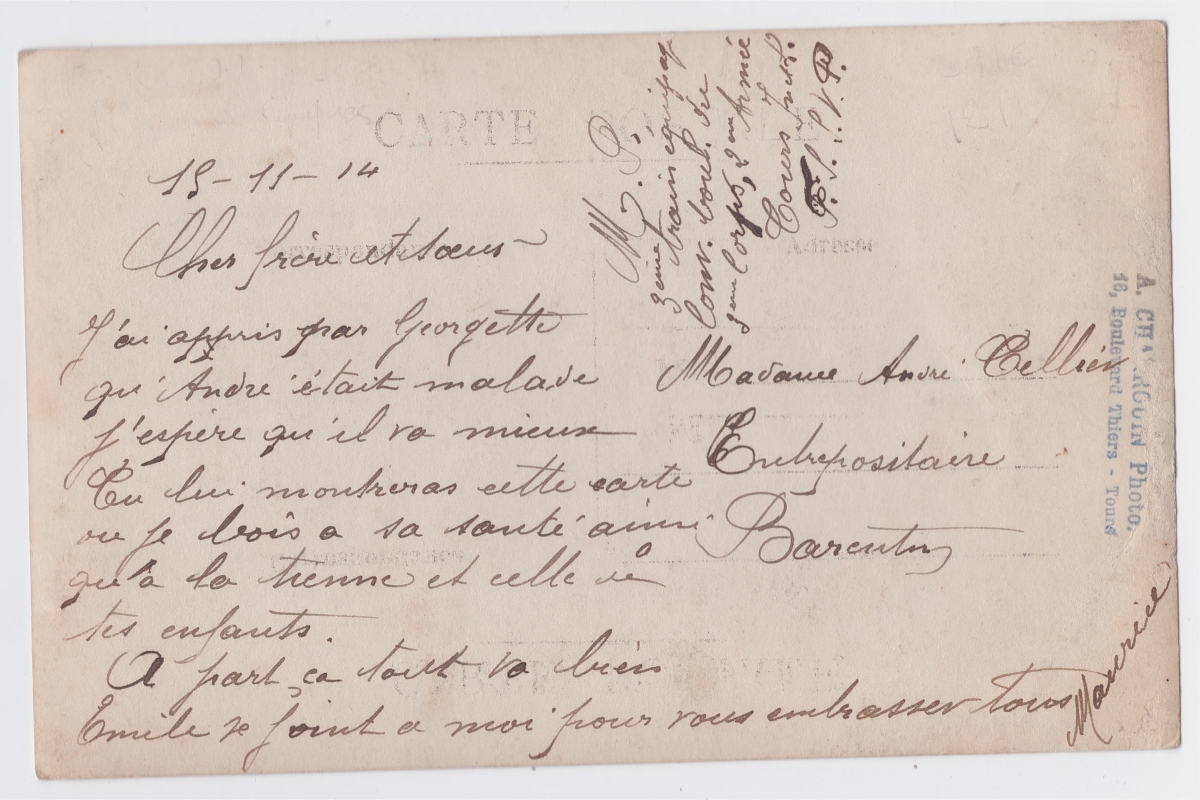 CARTE
15-11-14
Cher frère et soeur
J'ai appris par Georgette
qu'André était malade
j'espère qu'il va mieux
Tu lui montreras cette carte
ou je bois a sa santé ainsi
qu'à la tienne et celle de
tes enfants.
A part ça tout va bien
Emile se joint a moi pour vous embrasser tous
Maurice
M. P.
3eme train équipage
Conv. boul. du
3eme Corps, 2me Armée
Tours
F.S.V.P.
Adresse
Madame André Tellier
Entrepositaire
Barentin
A. CHARGOIN Photo.
16, Boulevard Thiers - Tours